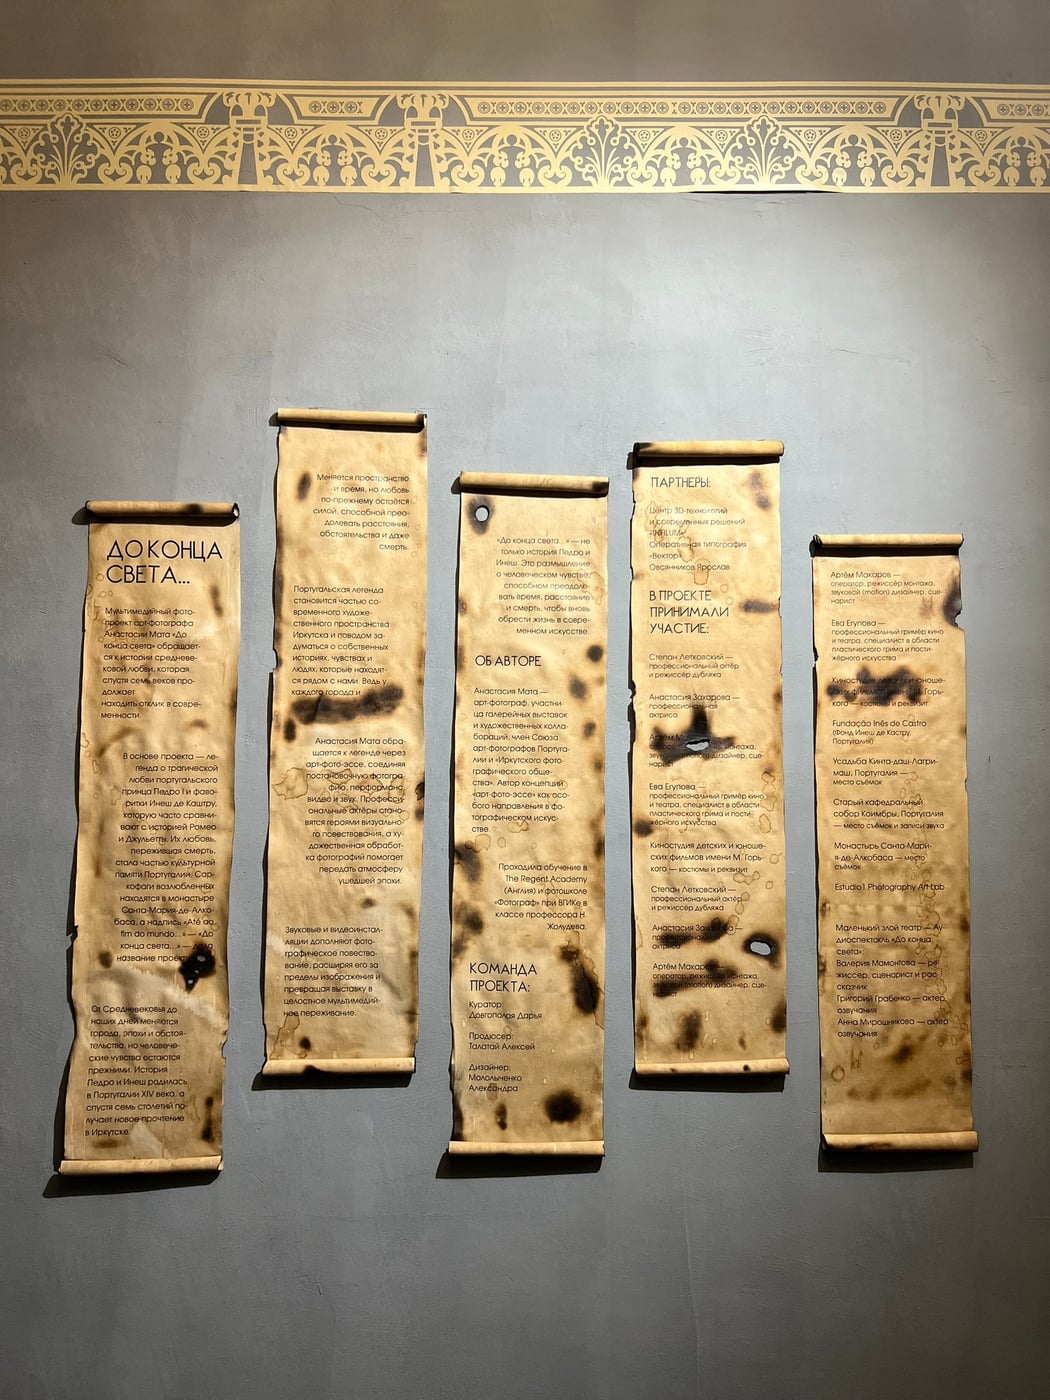 ДО КОНЦА
СВЕТА...
Мультимедийный фото-
проект арт-фотографа
Анастасии Мата «До
конца света» обращает-
ся к истории средневе-
ковой любви, которая
спустя семь веков про-
должает
находить отклик в совре-
менности.
В основе проекта — ле-
генда о трагической
любви португальского
принца Педро I и фаво-
ритки Инеш де Каштру,
которую часто сравни-
вают с историей Ромео
и Джульетты. Их любовь,
пережившая смерть,
стала частью культурной
памяти Португалии: Сар-
кофаги возлюбленных
находятся в монастыре
Санта-Мария-де-Алко-
баса, а надпись «Até ao
fim do mundo...» — «До
конца света...» — дала
название проекту.
От Средневековья до
наших дней меняются
города, эпохи и обстоя-
тельства, но человече-
ские чувства остаются
прежними. История
Педро и Инеш родилась
в Португалии XIV века, а
спустя семь столетий по-
лучает новое прочтение
в Иркутске.
Меняется пространство
и время, но любовь
по-прежнему остаётся
силой, способной прео-
долевать расстояния,
обстоятельства и даже
смерть.
Португальская легенда
становится частью со-
временного художе-
ственного пространства
Иркутска и поводом за-
думаться о собственных
историях, чувствах и
людях, которые находят-
ся рядом с нами. Ведь у
каждого города и
Анастасия Мата обра-
щается к легенде через
арт-фото-эссе, соединяя
постановочную фотогра-
фию, перформанс,
видео и звук. Професси-
ональные актёры стано-
вятся героями визуально-
го повествования, а ху-
дожественная обработ-
ка фотографий помогает
передать атмосферу
ушедшей эпохи.
Звуковые и видеоинстал-
ляции дополняют фото-
графическое повество-
вание, расширяя его за
пределы изображения и
превращая выставку в
целостное мультимедий-
ное переживание.
«До конца света...» — не
только история Педро и
Инеш. Это размышление
о человеческом чувстве,
способном преодоле-
вать время, расстояние
и смерть, чтобы вновь
обрести жизнь в совре-
менном искусстве.
ОБ АВТОРЕ
Анастасия Мата —
арт-фотограф, участни-
ца галерейных выставок
и художественных колла-
бораций, член Союза
арт-фотографов Португа-
лии и «Иркутского фото-
графического обще-
ства». Автор концепций
«арт-фото-эссе» как осо-
бого направления в фо-
тографическом искус-
стве.
Проходила обучение в
The Regent Academy
(Англия) и фотошколе
«Фотограф» при ВГИКе в
классе профессора Н.
Жолудева.
КОМАНДА
ПРОЕКТА:
Куратор:
Довгополая Дарья
Продюсер:
Талатай Алексей
Дизайнер:
Мололыченко
Александра
ПАРТНЕРЫ:
Центр 3D-технологий
и современных решений
«INFILUM»
Оперативная типография
«Вектор»
Овсянников Ярослав
В ПРОЕКТЕ
ПРИНИМАЛИ
УЧАСТИЕ:
Степан Летковский —
профессиональный актёр
и режиссёр дубляжа
Анастасия Захарова —
профессиональная
актриса
Артём
монтажа,
звуковой (motion) дизайнер, сце-
нарист
Ева Егупова —
профессиональный гримёр кино
и театра, специалист в области
пластического грима и пости-
жёрного искусства
Киностудия детских и юноше-
ских фильмов имени М. Горь-
кого — костюмы и реквизит
Степан Летковский —
профессиональный актёр
и режиссёр дубляжа
Анастасия Захарова —
профессиональная
актриса
Артём Макаров —
монтажа,
звуковой (motion) дизайнер, сце-
нарист
Артём Макаров —
оператор, режиссёр монтажа,
звуковой (motion) дизайнер, сце-
нарист
Ева Егупова —
профессиональный гримёр кино
и театра, специалист в области
пластического грима и пости-
жёрного искусства
Киностудия детских и юноше-
ских фильмов имени М. Горь-
кого — костюмы и реквизит
Fundação Inês de Castro
(Фонд Инеш де Кастру,
Португалия)
Усадьба Кинта-даш-Лагри-
маш, Португалия —
место съёмок
Старый кафедральный
собор Коимбры, Португалия
— место съёмок и записи звука
Монастырь Санта-Мари-
я-де-Алкобаса — место
съёмок
Estudio1 Photography Art Lab
Маленький злой театр — Ау-
диоспектакль «До конца
света»:
Валерия Мамонтова — ре-
жиссер, сценарист и рас-
сказчик
Григорий Грабенко — актер
озвучания
Анна Мирошникова — актер
озвучания